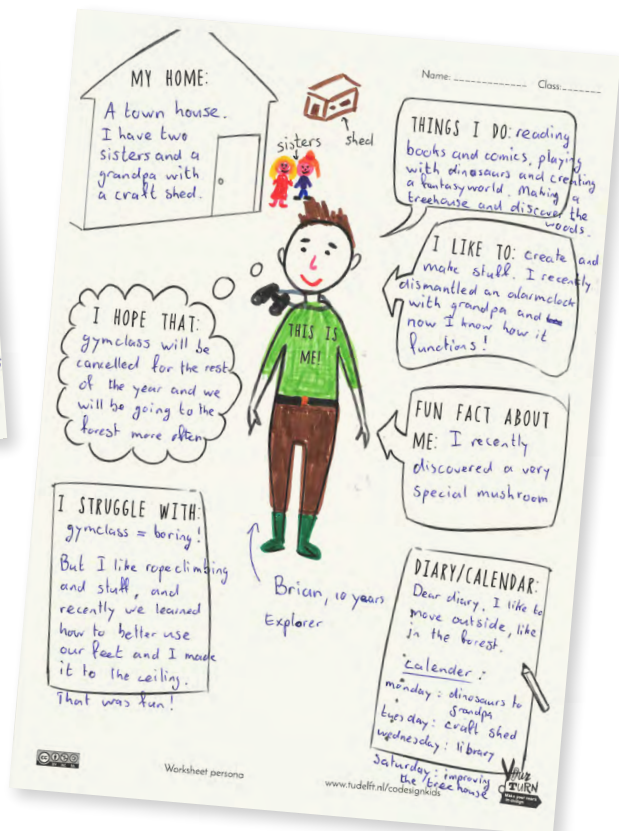 Name: ____________ Class: _______
MY HOME:
A town house.
I have two
sisters and a
grandpa with
a craft shed.
sisters
shed
THINGS I DO: reading
books and comics, playing
with dinosaurs and creating
a fantasyworld. Making a
treehouse and discover the
woods.
I LIKE TO: create and
make stuff. I recently
dismantled an alarmclock
with grandpa and
now I know how it
functions!
I HOPE THAT:
gymclass will be
cancelled for the rest
of the year and we
will be going to the
forest more often
THIS IS
ME!
FUN FACT ABOUT
ME: I recently
discovered a very
special mushroom
I STRUGGLE WITH:
gymclass = boring!
But I like ropeclimbing
and stuff, and
recently we learned
how to better use
our feet and I made
it to the ceiling.
That was fun!
Brian, 10 years
Explorer
DIARY/CALENDAR:
Dear diary, I like to
move outside, like
in the forest.
calender:
monday: dinosaurs to
grandpa
tuesday: craft shed
wednesday: library
Saturday: improving
the treehouse
Worksheet persona
www.tudelft.nl/codesignkids
Your
TURN